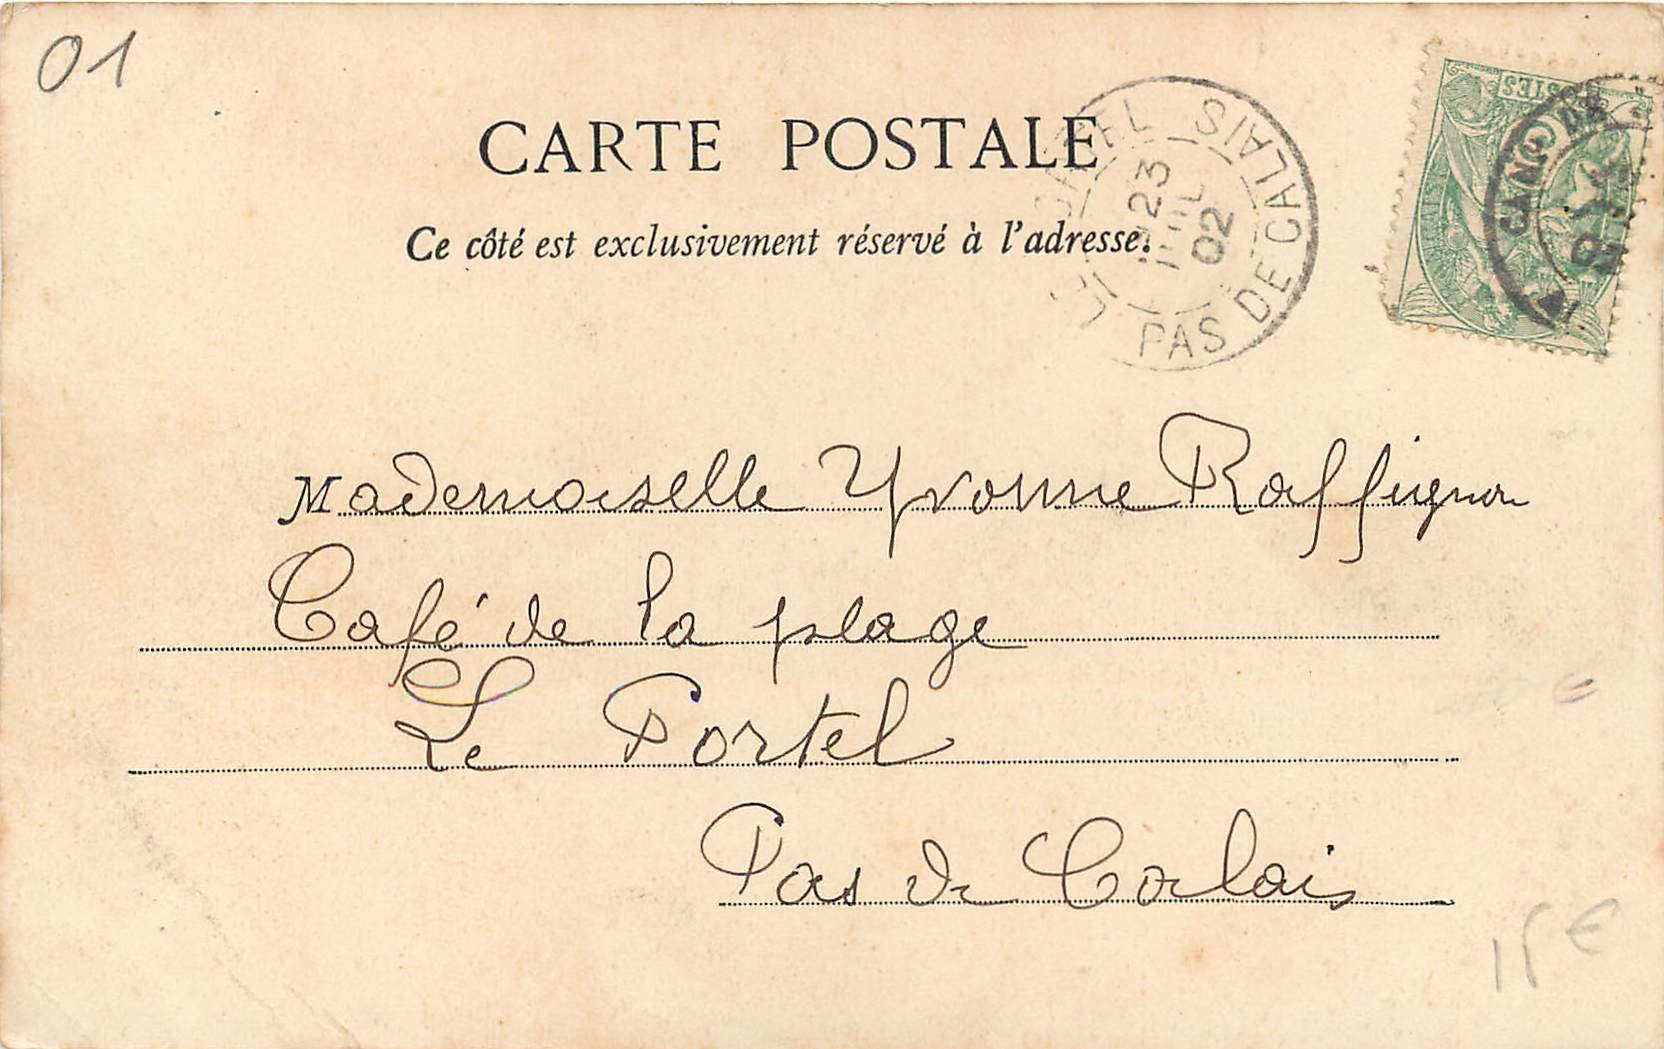 01
CARTE POSTALE
Ce côté est exclusivement réservé à l'adresse.
LE PORTEL PAS DE CALAIS
23
JUIL
02
POSTES
Mademoiselle Yvonne Raffignon
Café de la plage
Le Portel
Pas de Calais
15€